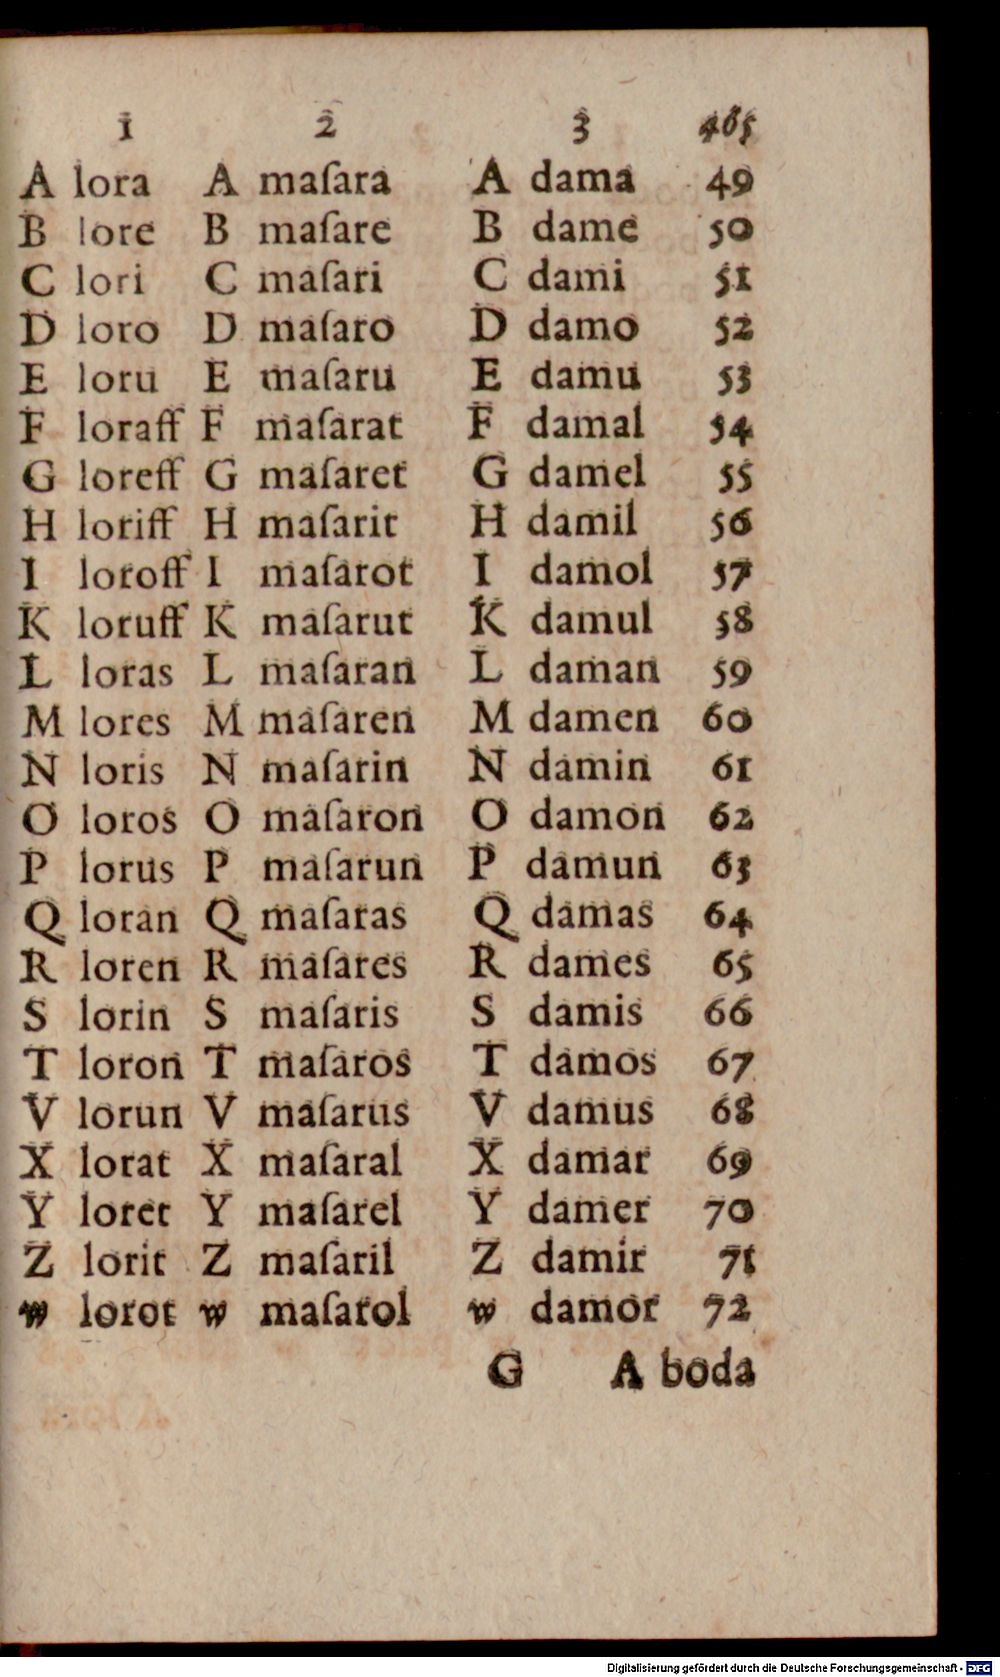 1 2 3 485
A lora A maſara A dama 49
B lore B maſare B dame 50
C lori C maſari C dami 51
D loro D maſaro D damo 52
E loru E maſaru E damu 53
F loraff F maſarat F damal 54
G loreff G maſaret G damel 55
H loriff H maſarit H damil 56
I loroff I maſarot I damol 57
K loruff K maſarut K damul 58
L loras L maſaran L daman 59
M lores M maſaren M damen 60
N loris N maſarin N damin 61
O loros O maſaron O damon 62
P lorus P maſarun P damun 63
Q loran Q maſaras Q damas 64
R loren R maſares R dames 65
S lorin S maſaris S damis 66
T loron T maſaros T damos 67
V lorun V maſarus V damus 68
X lorat X maſaral X damar 69
Y loret Y maſarel Y damer 70
Z lorit Z maſaril Z damir 71
w lorot w maſarol w damor 72
G A boda
Digitalisierung gefördert durch die Deutsche Forschungsgemeinschaft - DFG